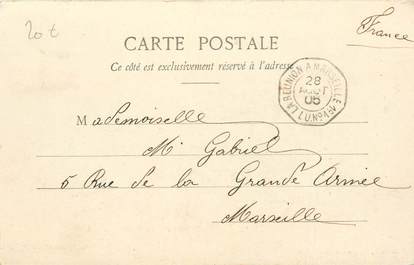 20 €
France
CARTE POSTALE
Ce côté est exclusivement réservé à l'adresse
LA REUNION A MARSEILLE
28
AOUT
06
Mademoiselle
M. Gabriel
5 Rue de la Grande Armée
Marseille